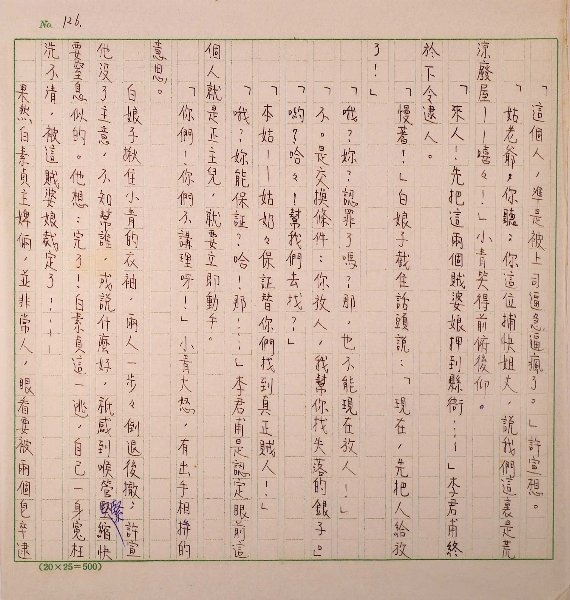 No. 126.
「這個人，準是被上司逼急逼瘋了。」許宣想。
「姑老爺，你聽：你這位捕快姐丈，說我們這裏是荒
涼廢屋——嘻々！」小青笑得前俯後仰。
「來人！先把這兩個賊婆娘押到縣衙…！」李君甫終
於下令逮人。
「慢著！」白娘子截住話頭說：「現在，先把人給放
了！」
「哦？妳？認罪了嗎？那，也不能現在放人！」
「不。是交換條件：你放人，我幫你找失落的銀子。」
「喲？哈々！幫我們去找？」
「本姑——姑奶々保証替你們找到真正賊人！」
「哦？妳能保証？哈！那…」李君甫是認定眼前這
個人就是正主兒，就要立即動手。
「你們！你們不講理呀！」小青大怒，有出手相拼的
意思。
白娘子揪住小青的衣袖，兩人一步々倒退後撤；許宣
他沒了主意，不知幫誰，或說什麼好，祇感到喉管緊縮快
要窒息似的。他想：完了！白素貞這一逃，自己一身冤枉
洗不清，被這賊婆娘栽定了！——
果然白素貞主婢倆，並非常人，眼看要被兩個皂隸逮
(20×25=500)